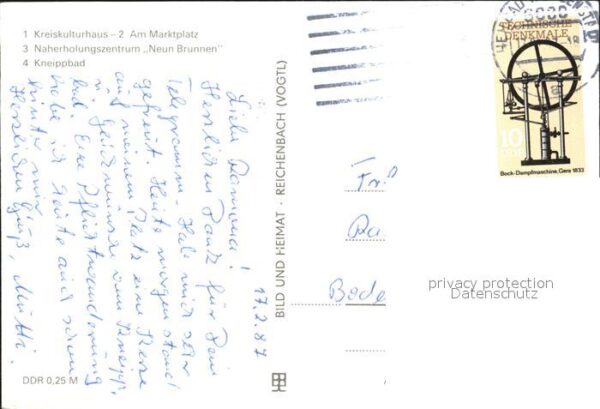 1 Kreiskulturhaus – 2 Am Marktplatz
3 Naherholungszentrum „Neun Brunnen"
4 Kneippbad
17.2.87
Liebe Ramona!
Herzlichen Dank für Dein
Telegramm. Hab mich sehr
gefreut. Heute morgen stand
auf meinem Platz eine Kerze
u. Geburtstagswünsche vom Kneipp-
bad. Eine Pflichtwanderung
habe ich heute auch schon
hinter mir.
Herzlichen Gruß, Mutti.
DDR 0,25 M
BILD UND HEIMAT · REICHENBACH (VOGTL)
TECHNISCHE
DENKMALE
10
DDR
Bock-Dampfmaschine, Gera 1833
Fr
Ra
Bode
privacy protection
Datenschutz